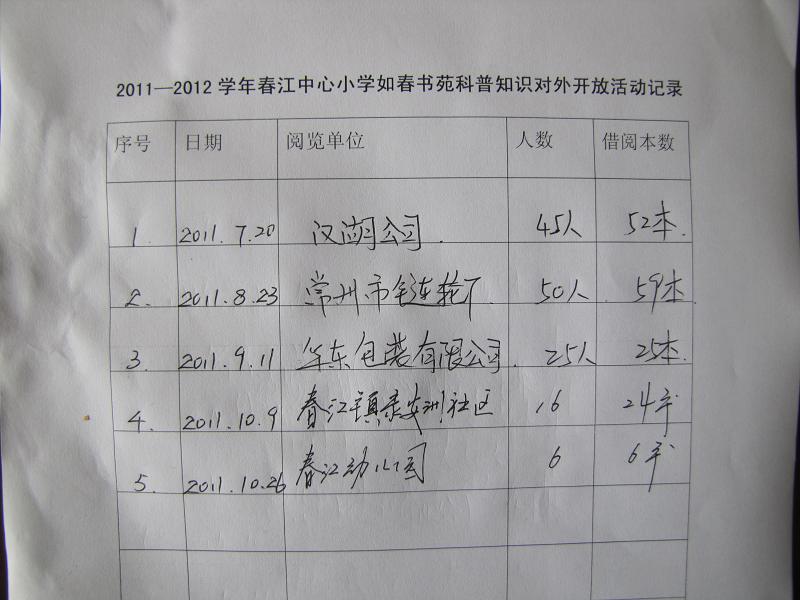 2011—2012 学年春江中心小学如春书苑科普知识对外开放活动记录
序号 日期 阅览单位 人数 借阅本数
1. 2011.7.20 汉湖公司. 45人 52本.
2. 2011.8.23 常州市链轮厂 50人. 59本
3. 2011.9.11 华东包装有限公司. 25人 25本.
4. 2011.10.9 春江镇录安洲社区 16 24本
5. 2011.10.26 春江幼儿园 6 6本